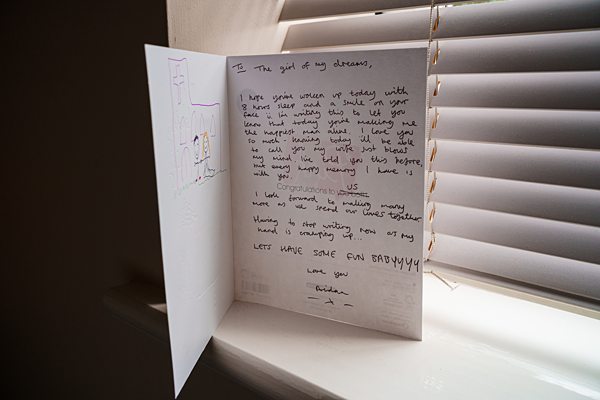 To The girl of my dreams,
I hope you've woken up today with
8 hours sleep and a smile on your
face :). I'm writing this to let you
know that today you're making me
the happiest man alive. I love you
so much - having today I'll be able
to call you my wife just blows
my mind. I've told you this before,
but every happy memory I have is
with you.
US
Congratulations to you both
I look forward to making many
more as we spend our lives together
Having to stop writing now as my
hand is cramping up...
LETS HAVE SOME FUN BABYYYYY
Love you
Aidan
x